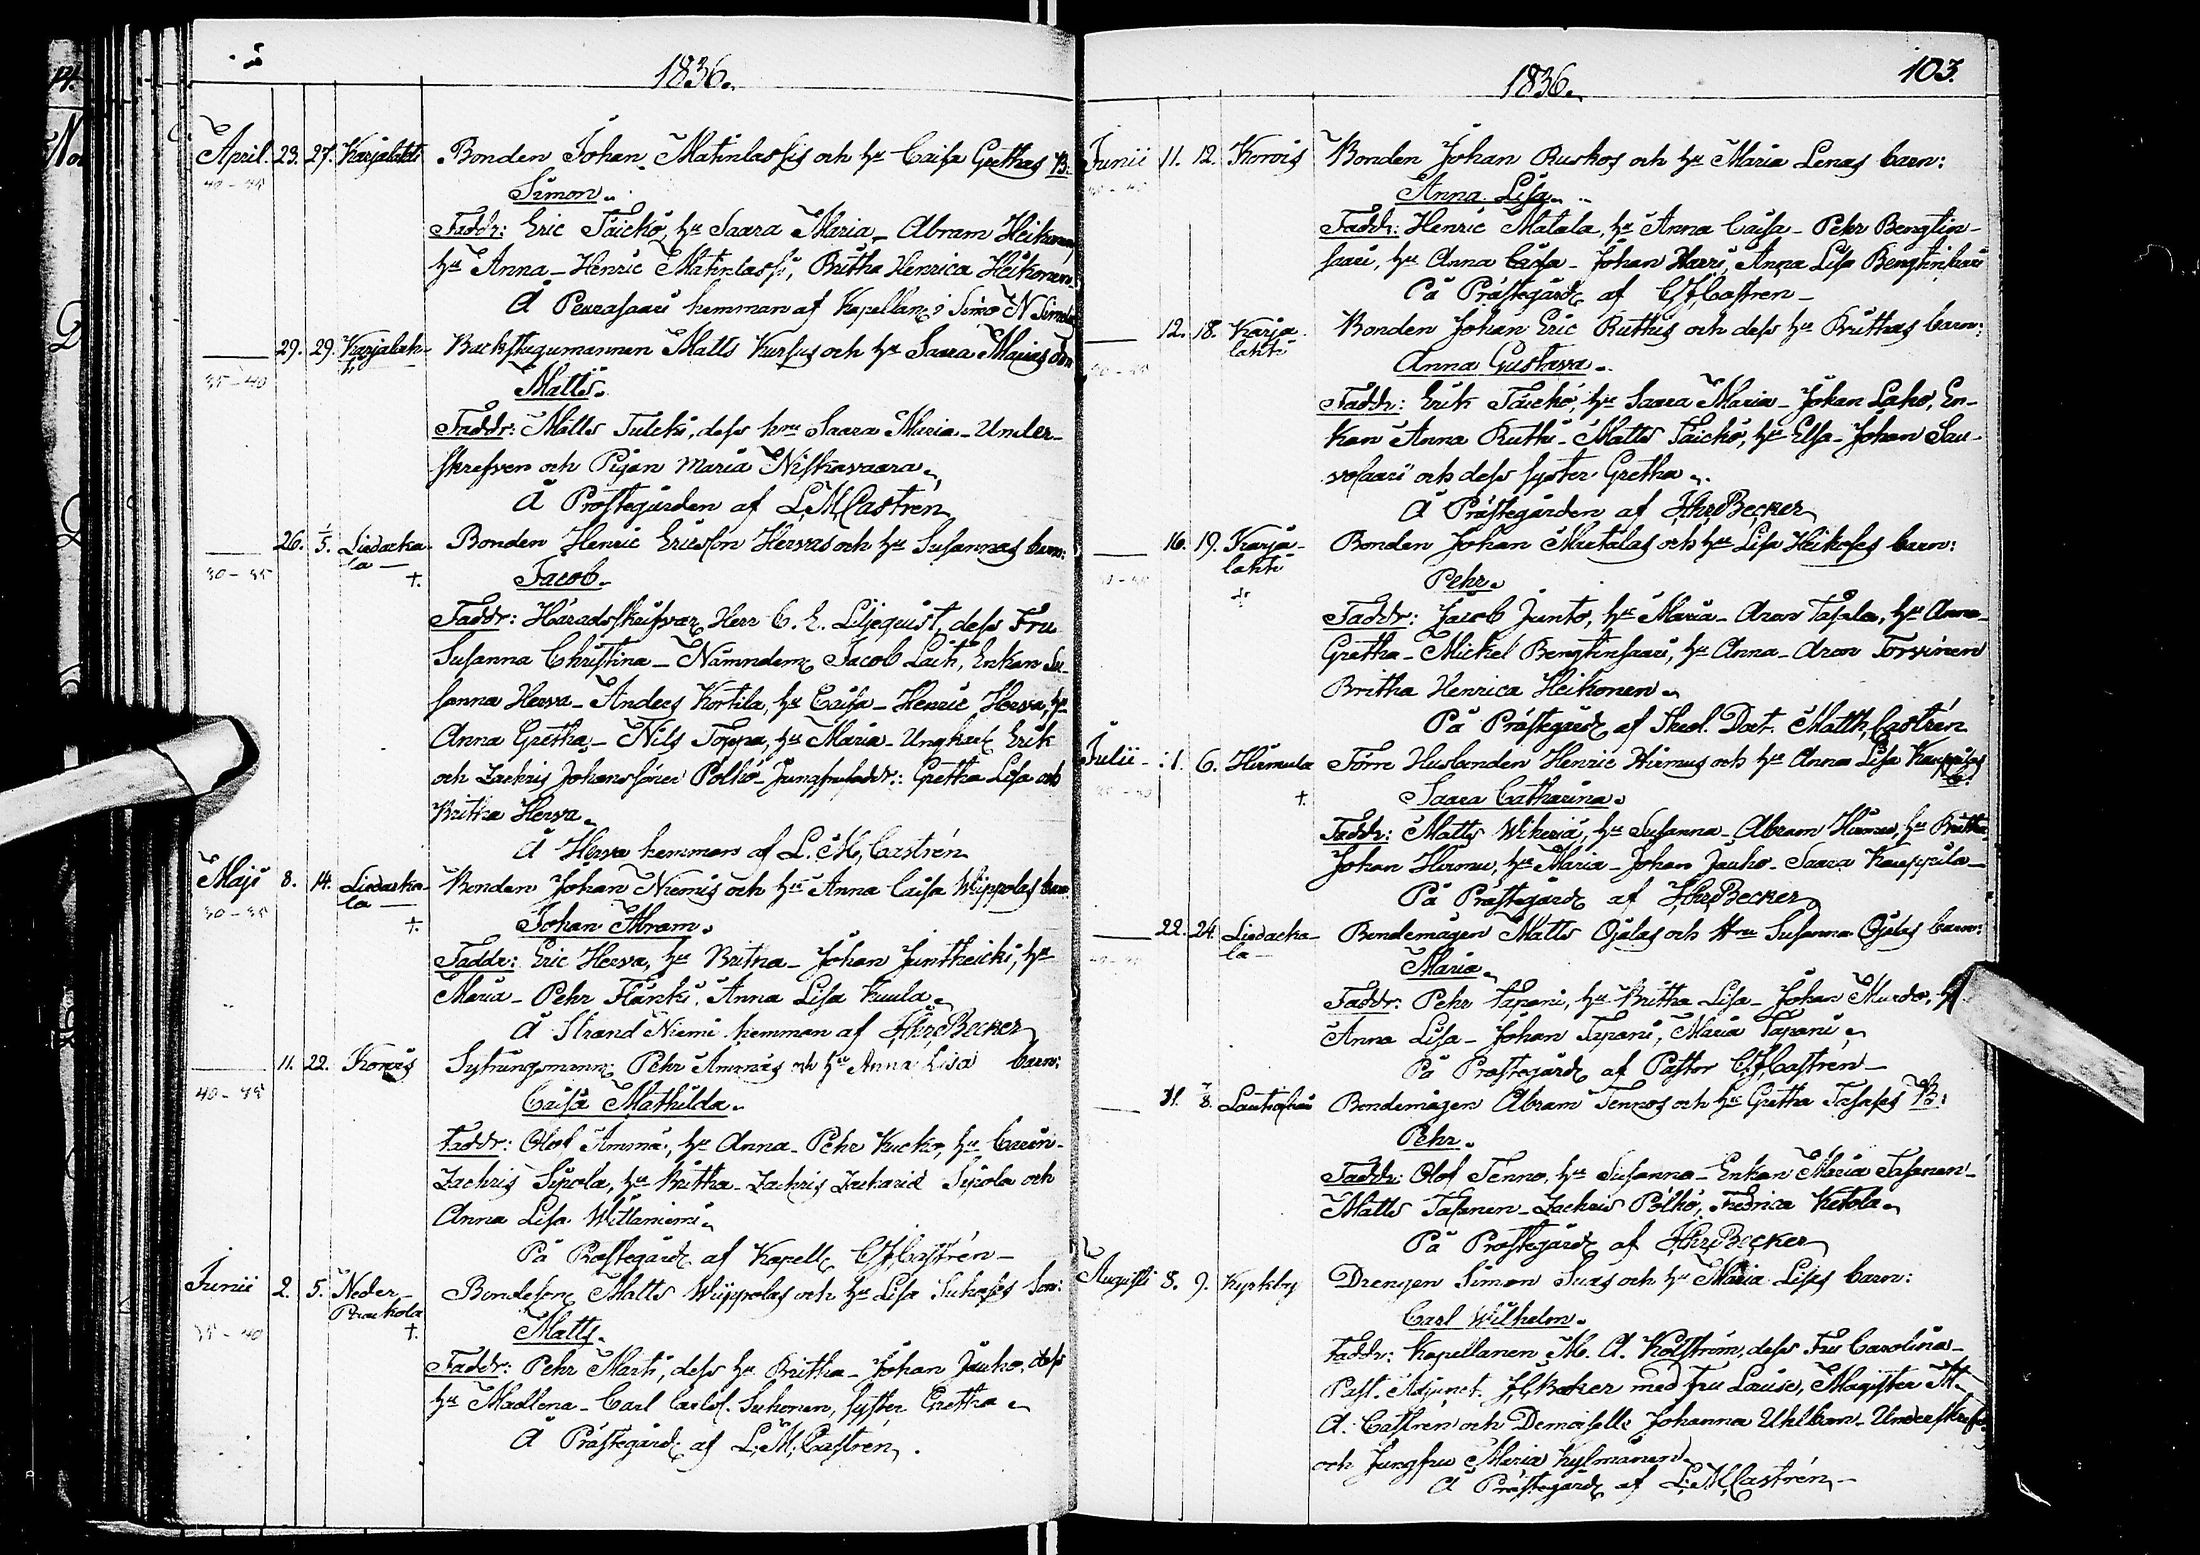 1836.
April. 23. 27. Karjalahti Bonden Johan Matinlassis och h:u Caisa Grethas B:
40-45 Simon.
Faddr: Eric Täickö, h:u Saara Maria - Abram Heikonen
h:u Anna - Henric Matinlassi, Britha Henrica Heikonen.
Å Peurasaari hemman af Kapellan i Simo N Simelii
29. 29. Karjalah- Backstugumannen Matts Kursus och h:u Saara Marias son
ti
35-40 Matts.
Faddr: Matts Tulcki, dess h:u Saara Maria - Under-
skrefven och Pigan Maria Niskavaara
Å Prostegården af L. M. Castrén
26. 1/5. Liedacka- Bonden Henric Ericsson Hervas och h:u Susannas barn:
la —
30-35 †. Jacob.
Faddr: Häradsskrifvar Herr C. E. Liljequist, dess Fru
Susanna Christina - Nämndem Jacob Lait, Enkan Su-
sanna Herva - Anders Kortila, h:u Caisa - Henric Herva, h:u
Anna Gretha - Nils Toppa, h:u Maria - Ungkarl Erik
och Zachris Johanssöner Pölkö - Jungfrufaddr: Gretha Lisa och
Britha Herva
Å Herva hemman af L. M. Castrén
Maji 8. 14. Liedacka- Bonden Johan Niemis och h:u Anna Caisa Wippolas barn
la —
30-35 †. Johan Abram.
Faddr: Eric Herva, h:u Britha - Johan Juntheicki, h:u
Maria - Pehr Flänki, Anna Lisa Kuula
Å Strand Niemi hemman af J H Becker
11. 22. Korvis Sytningsmann Pehr Ämmäs och h:u Anna Lisa barn:
40-45 Caisa Mathilda.
Faddr: Olof Ämmä, h:u Anna - Pehr Kucko, h:u Carin-
Zachris Sipola, h:u Britha - Zachris Zachariæ Sipola och
Anna Lisa Wittaniemi
På Prostegård af Kapell C J Castrén -
Junii 2. 5. Neder- Bondeson Matts Wippolas och h:u Lisa Suhoses son:
Paackola
35-40 †. Matts.
Faddr: Pehr Marti, dess h:u Britha - Johan Jauho, dess
h:u Madlena - Carl Carlss. Suhonen, syster Gretha
Å Prästegård af L. M. Castrén.
1836. 103.
Junii 11. 12. Korvis Bonden Johan Ruskos och h:u Maria Lenas barn:
Anna Lisa.
Faddr: Henric Matala, h:u Anna Caisa - Pehr Bengtin-
saari, h:u Anna Caisa - Johan Harri, Anna Lisa Bengtinsaari
På Prästegård af C J Castrén -
12. 18. Karja- Bonden Johan Eric Ruthis och dess h:u Brithas barn:
lahti
Anna Gustava.
Faddr: Erik Täickö, h:u Saara Maria - Johan Laho, En-
kan Anna Ruthi - Matts Täickö, h:u Elsa - Johan Sau-
vosaari och dess syster Gretha
Å Prästegården af J H Becker
16. 19. Karja- Bonden Johan Matalas och h:u Lisa Heikoses barn:
lahti
† Pehr.
Faddr: Jacob Junto, h:u Maria - Aron Tasala, h:u Anna-
Gretha - Mickel Bengtinsaari, h:u Anna - Aron Torvinen
Britha Henrica Heikonen
På Prästegård af Theol. Doct. Matth. Castrén
Julii 1. 6. Hirmula Förre Husbonden Henric Hirmus och h:u Anna Lisa Kauppilas
b:
† Saara Catharina.
Faddr: Matts Wikeriä, h:u Susanna - Abram Hirmu, h:u Britha
Johan Hirmu, h:u Maria - Johan Jauho - Saara Kauppila -
På Prästegård af J H Becker
22. 24. Liedacka- Bondemågen Matts Ojalas och H:u Susanna Ojalas barn:
la —
Maria
Faddr: Pehr Tapani, h:u Britha Lisa - Johan Murdo, h:u
Anna Lisa - Johan Tapani, Maria Tapani
På Prostegård af Pastor C J Castrén -
31. 7/8. Lautiosaari Bondemågen Abram Tennos och h:u Gretha Tasases B:
Pehr.
Faddr: Olof Tenno, h:u Susanna - Enkan Maria Tasanen -
Matts Tasanen - Zachris Pölkö, Fredrica Ketola
På Prostegård af J H Becker
Augusti 8. 9. Kyrkby Drengen Simon Suas och h:u Maria Lisas barn:
Carl Wilhelm.
Faddr: Kapellanen M. A. Kolström, dess Fru Carolina -
Past. Adjunct. J H Becker med Fru Louise, Magister M.
A. Castrén och Demoiselle Johanna Uhlbom - Underskrefven
och Jungfru Maria Kylmänen
Å Prästegård af L. M. Castrén -